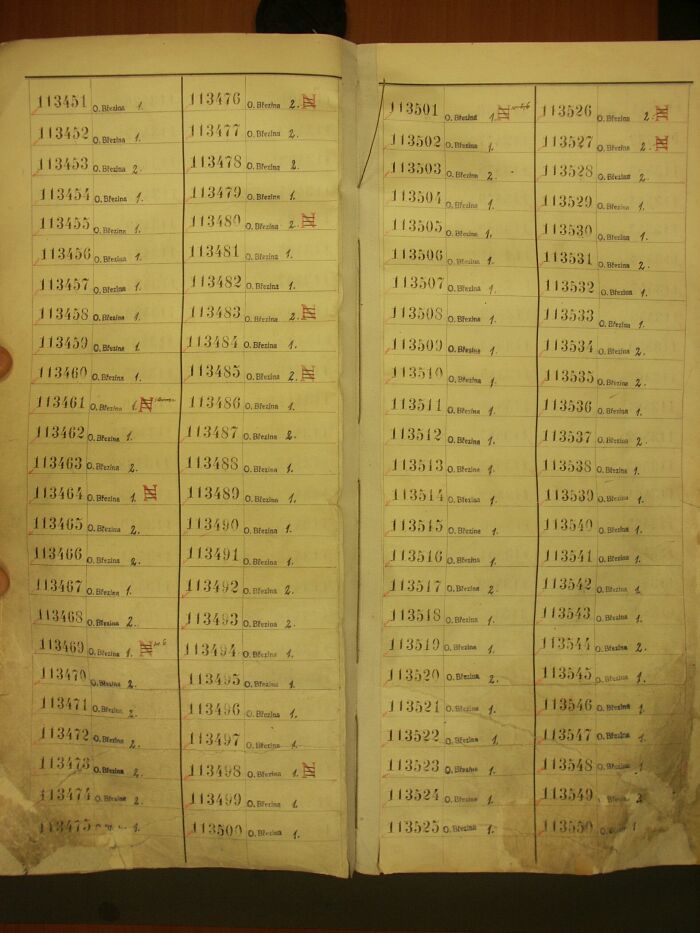 113451 O. Březina 1.
113452 O. Březina 1.
113453 O. Březina 2.
113454 O. Březina 1.
113455 O. Březina 1.
113456 O. Březina 1.
113457 O. Březina 1.
113458 O. Březina 1.
113459 O. Březina 1.
113460 O. Březina 1.
113461 O. Březina 1. III
113462 O. Březina 1.
113463 O. Březina 2.
113464 O. Březina 1. III
113465 O. Březina 2.
113466 O. Březina 2.
113467 O. Březina 1.
113468 O. Březina 2.
113469 O. Březina 1. III
113470 O. Březina 2.
113471 O. Březina 2.
113472 O. Březina 2.
113473 O. Březina 2.
113474 O. Březina 2.
113475 1.
113476 O. Březina 2. III
113477 O. Březina 2.
113478 O. Březina 2.
113479 O. Březina 1.
113480 O. Březina 2. III
113481 O. Březina 1.
113482 O. Březina 1.
113483 O. Březina 2. III
113484 O. Březina 1.
113485 O. Březina 2. III
113486 O. Březina 1.
113487 O. Březina 2.
113488 O. Březina 1.
113489 O. Březina 1.
113490 O. Březina 1.
113491 O. Březina 1.
113492 O. Březina 2.
113493 O. Březina 2.
113494 O. Březina 1.
113495 O. Březina 1.
113496 O. Březina 1.
113497 O. Březina 1.
113498 O. Březina 1. III
113499 O. Březina 1.
113500 O. Březina 1.
113501 O. Březina 1. III
113502 O. Březina 1.
113503 O. Březina 2.
113504 O. Březina 1.
113505 O. Březina 1.
113506 O. Březina 1.
113507 O. Březina 1.
113508 O. Březina 1.
113509 O. Březina 1.
113510 O. Březina 1.
113511 O. Březina 1.
113512 O. Březina 1.
113513 O. Březina 1.
113514 O. Březina 1.
113515 O. Březina 1.
113516 O. Březina 1.
113517 O. Březina 2.
113518 O. Březina 1.
113519 O. Březina 1.
113520 O. Březina 2.
113521 O. Březina 1.
113522 O. Březina 1.
113523 O. Březina 1.
113524 O. Březina 1.
113525 O. Březina 1.
113526 O. Březina 2. III
113527 O. Březina 2. III
113528 O. Březina 2.
113529 O. Březina 1.
113530 O. Březina 1.
113531 O. Březina 2.
113532 O. Březina 1.
113533 O. Březina 1.
113534 O. Březina 2.
113535 O. Březina 2.
113536 O. Březina 1.
113537 O. Březina 2.
113538 O. Březina 1.
113539 O. Březina 1.
113540 O. Březina 1.
113541 O. Březina 1.
113542 O. Březina 1.
113543 O. Březina 1.
113544 O. Březina 2.
113545 O. Březina 1.
113546 O. Březina 1.
113547 O. Březina 1.
113548 O. Březina 1.
113549 O. Březina 2
113550 1